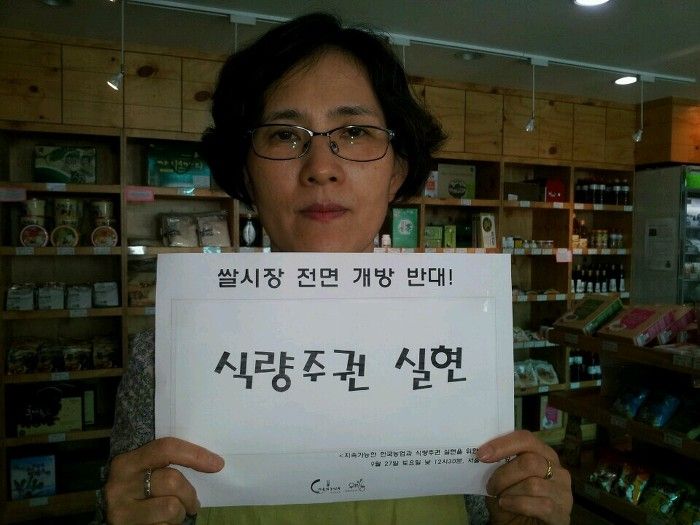 쌀시장 전면 개방 반대!
식량주권 실현
<지속가능한 한국농업과 식량주권 실현을 위한
9월 27일 토요일 낮 12시30분, 서울